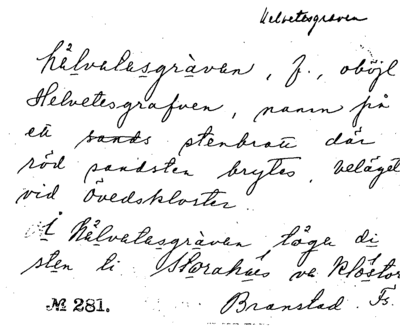 Helvetesgraven
hålvatasgràvan, f., oböjl
Helvetesgrafven, namn på
ett sands stenbrott där
röd sandsten brytes, beläget
vid Övedskloster
I hålvatasgràvan töga di
sten ti Storahus va Klöstor
№ 281. Branstad. Fs.